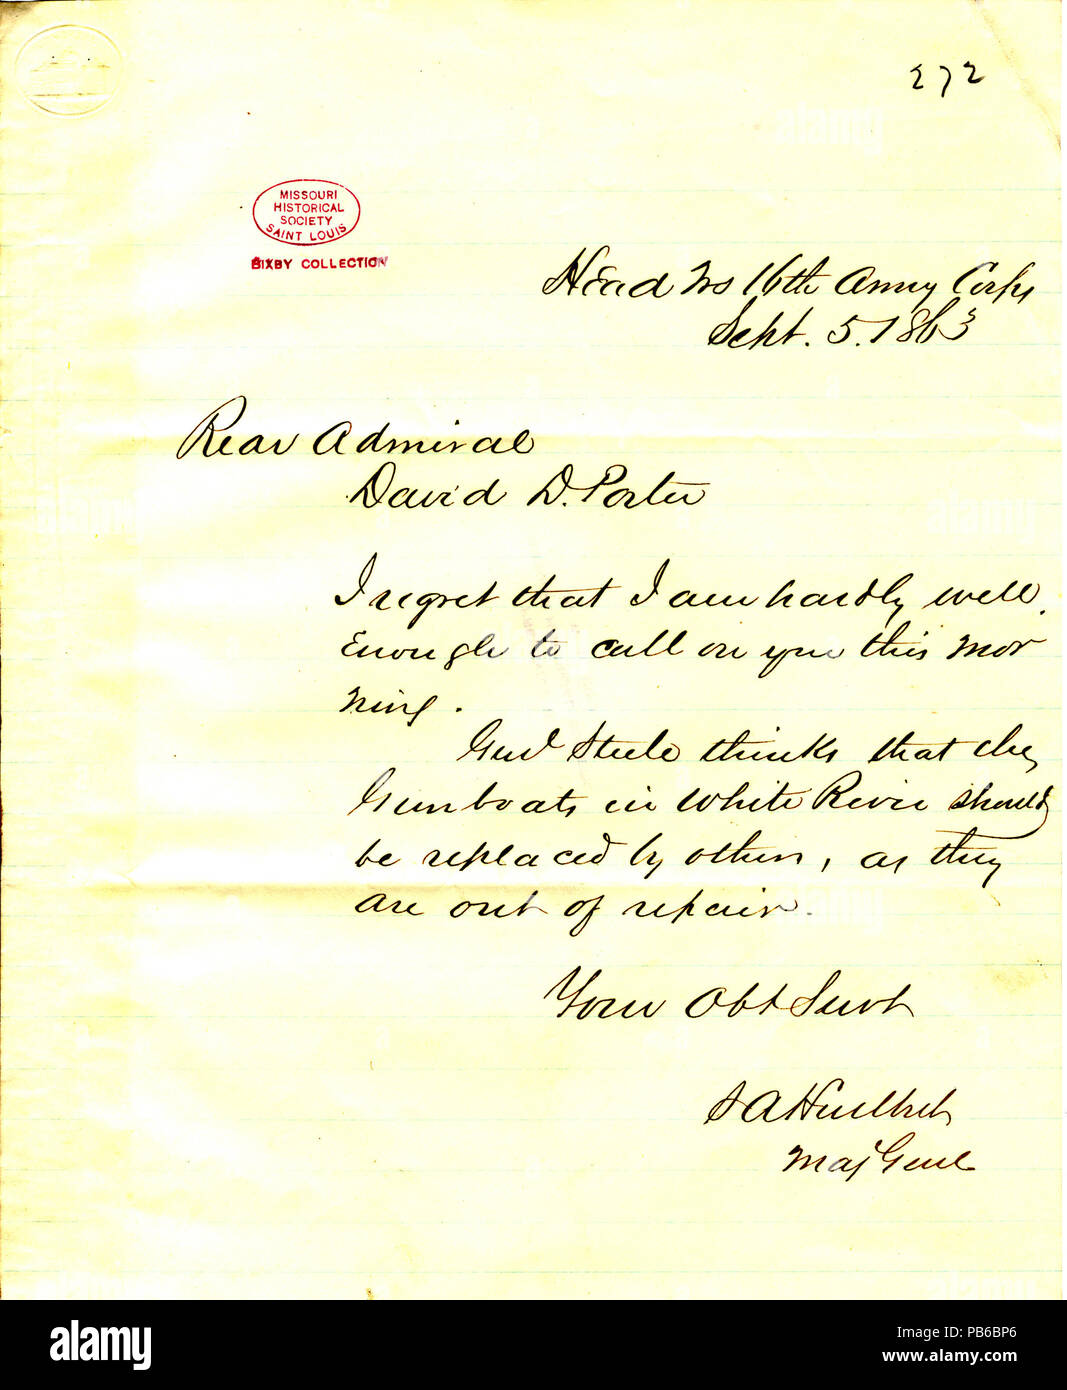 272
MISSOURI
HISTORICAL
SOCIETY
SAINT LOUIS
BIXBY COLLECTION
Head Qrs 16th Army Corps
Sept. 5. 1863
Rear Admiral
David D. Porter
I regret that I am hardly well
Enough to call on you this mor
ning.
Genl Steele thinks that the
Gunboats in White River should
be replaced by others, as they
are out of repair.
Your Obt Servt
S A Hurlbut
Maj Genl
alamy
Image ID: PB6BP6
www.alamy.com